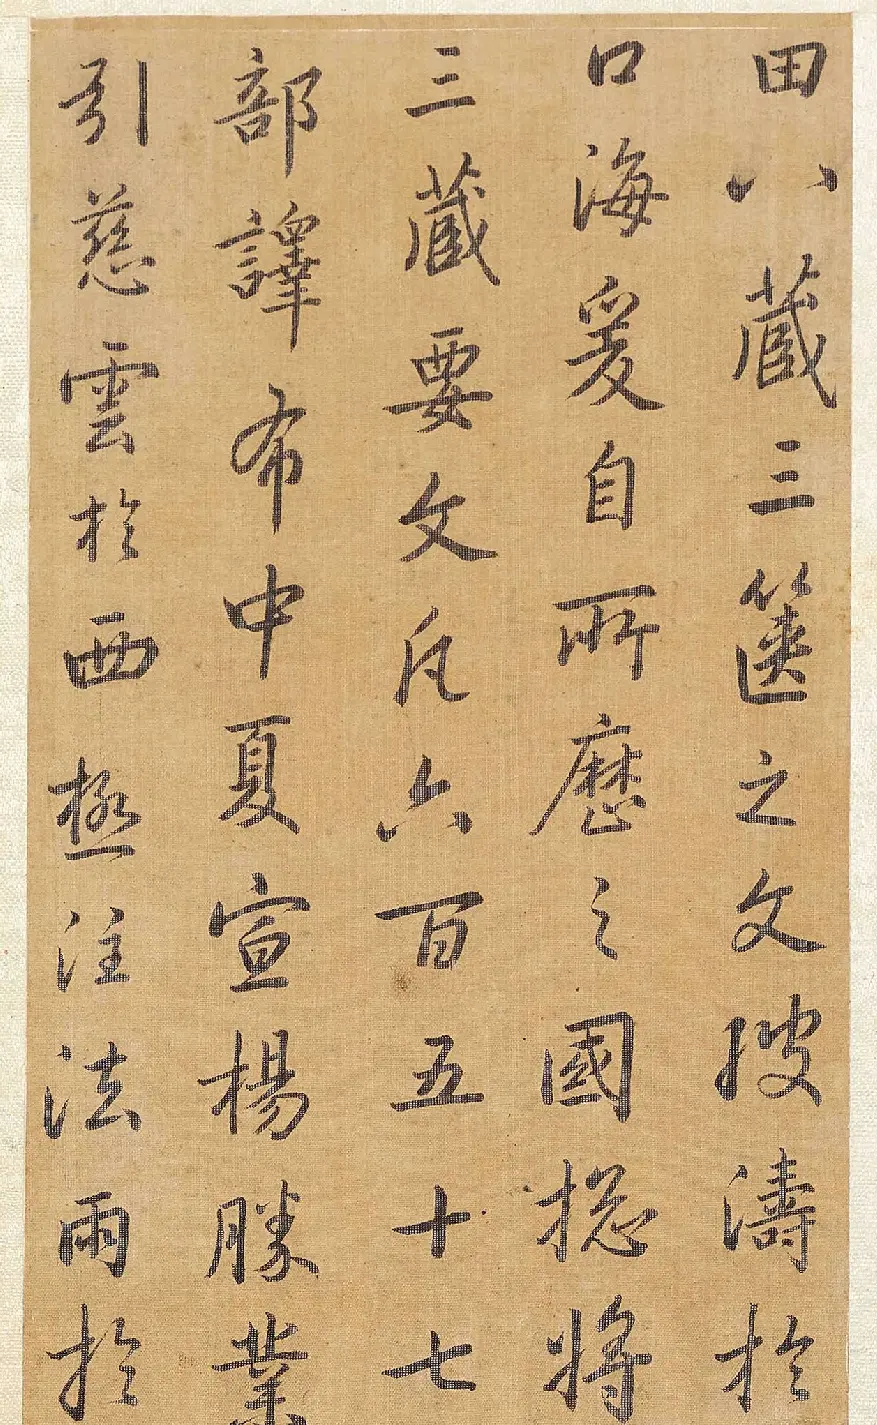 田八蔵三篋之文波濤於
口海爰自所歷之國揔將
三蔵要文凡六百五十七
部譯布中夏宣楊勝業
引慈雲於西極注法雨於